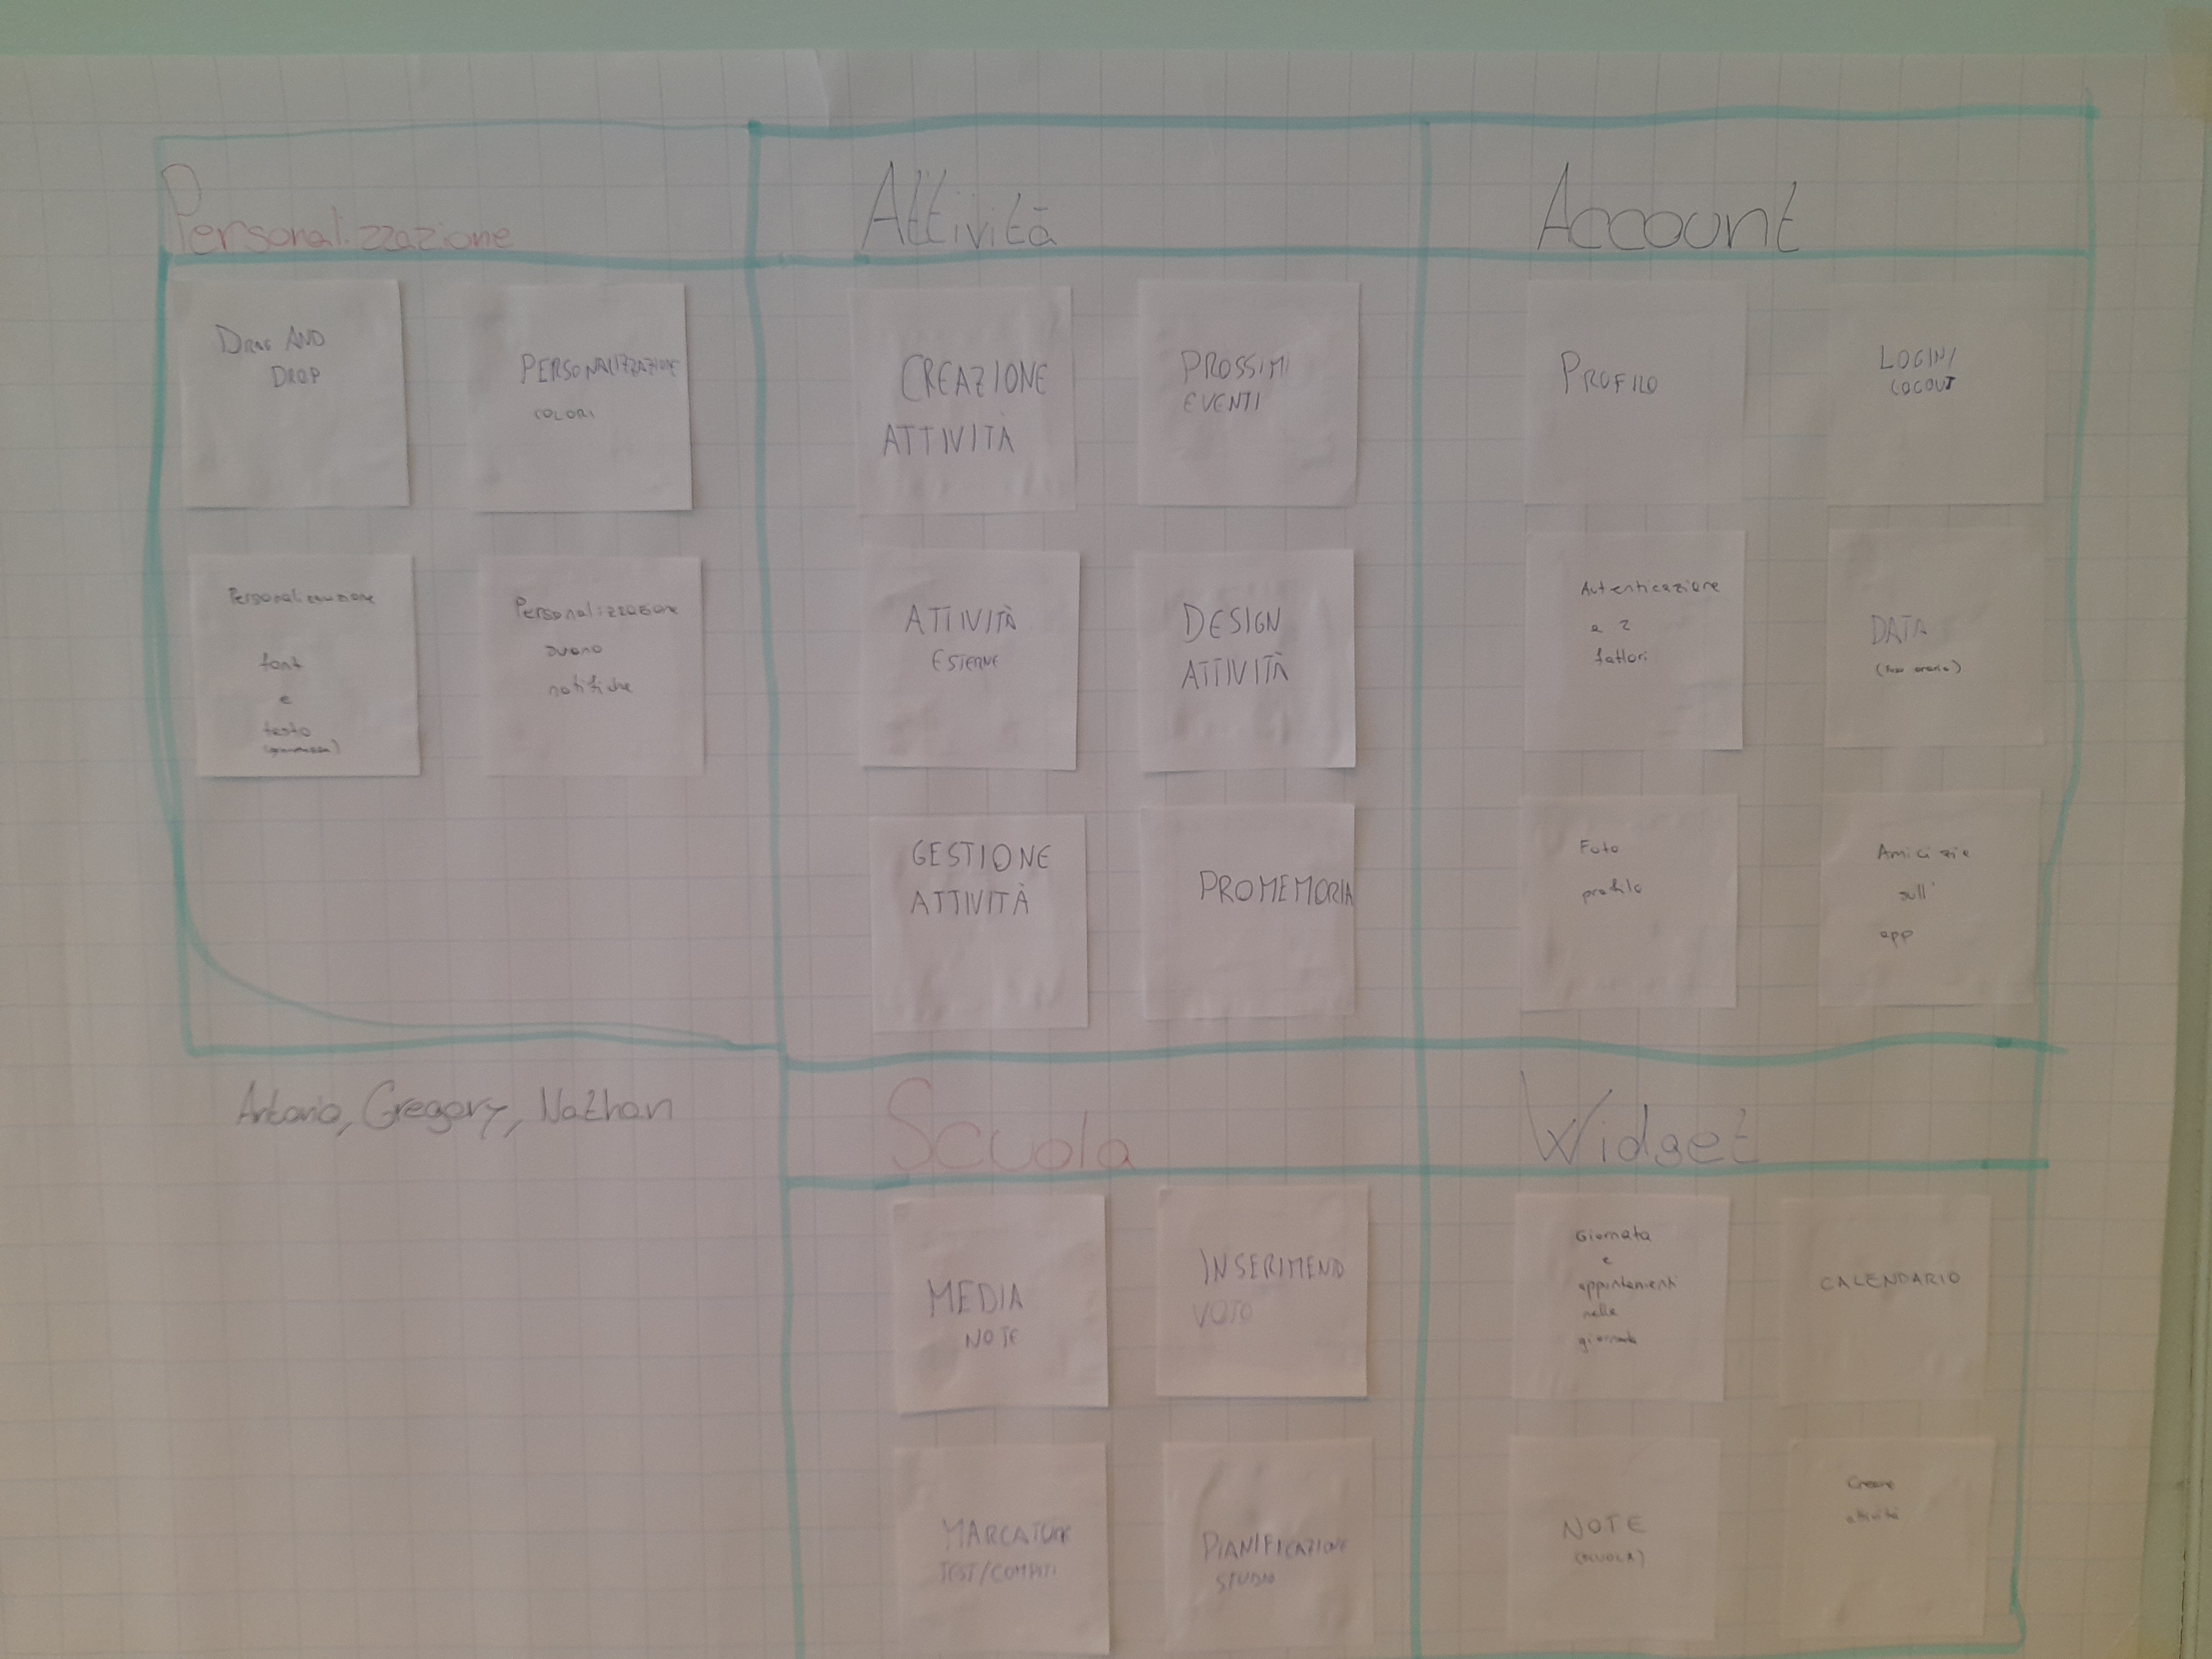 Personalizzazione
DRAG AND
DROP
PERSONALIZZAZIONE
COLORI
Personalizzazione
font
e
testo
Personalizzazione
suono
notifiche
Attività
CREAZIONE
ATTIVITÀ
PROSSIMI
EVENTI
ATTIVITÀ
ESTERNE
DESIGN
ATTIVITÀ
GESTIONE
ATTIVITÀ
PROMEMORIA
Account
PROFILO
LOGIN/
LOGOUT
Autenticazione
a 2
fattori
DATA
(fuso orario)
Foto
profilo
Amicizie
sull'
app
Antonio, Gregory, Nathan
Scuola
MEDIA
NOTE
INSERIMENTO
VOTO
MARCATURE
TEST/COMPITI
PIANIFICAZIONE
STUDIO
Widget
Giornata
e
appuntamenti
nella
giornata
CALENDARIO
NOTE
(SCUOLA)
Creare
attività